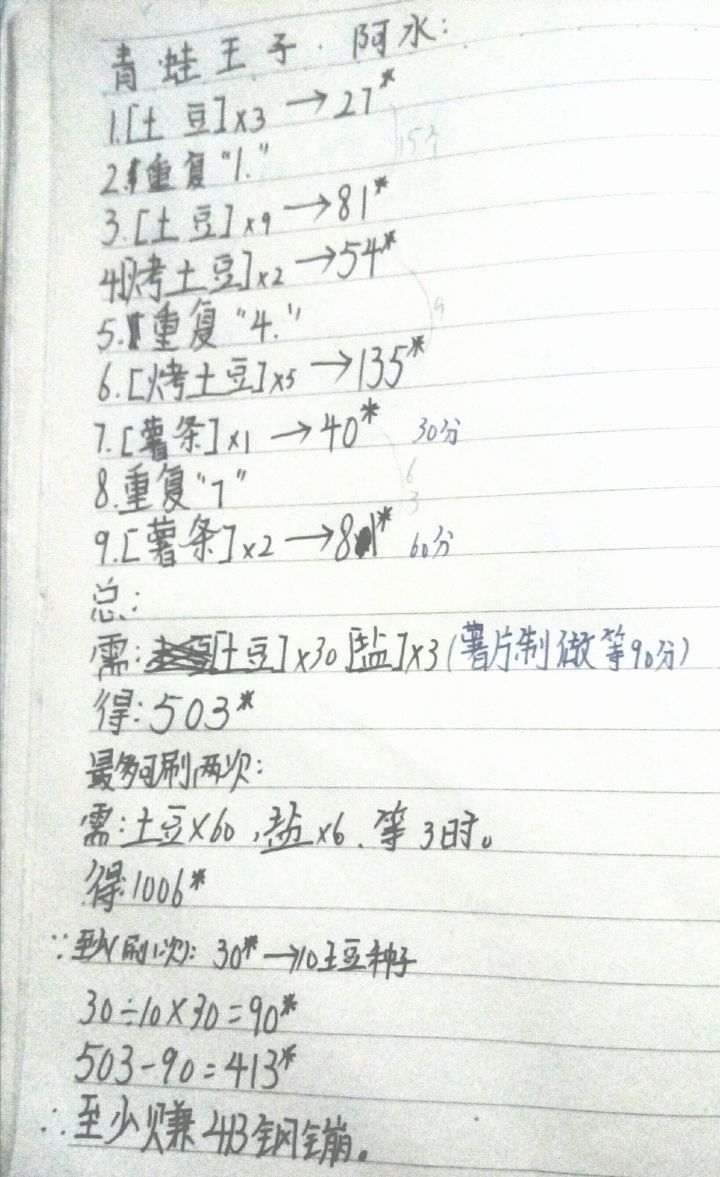 青蛙王子·阿水:
1.[土豆]×3 →27*
15个
2.重复"1."
3.[土豆]×9→81*
4.[烤土豆]×2→54*
9
5.重复"4."
6.[烤土豆]×5→135*
7.[薯条]×1→40* 30分
6
8.重复"7"
3
9.[薯条]×2→81* 60分
总:
需:[土豆]×30[盐]×3(薯片制做等90分)
得:503*
最多可刷两次:
需:土豆×60,盐×6、等3时。
得:1006*
∵至少刷1次:30*→10土豆种子
30÷10×30=90*
503-90=413*
∴至少赚413钢镚。